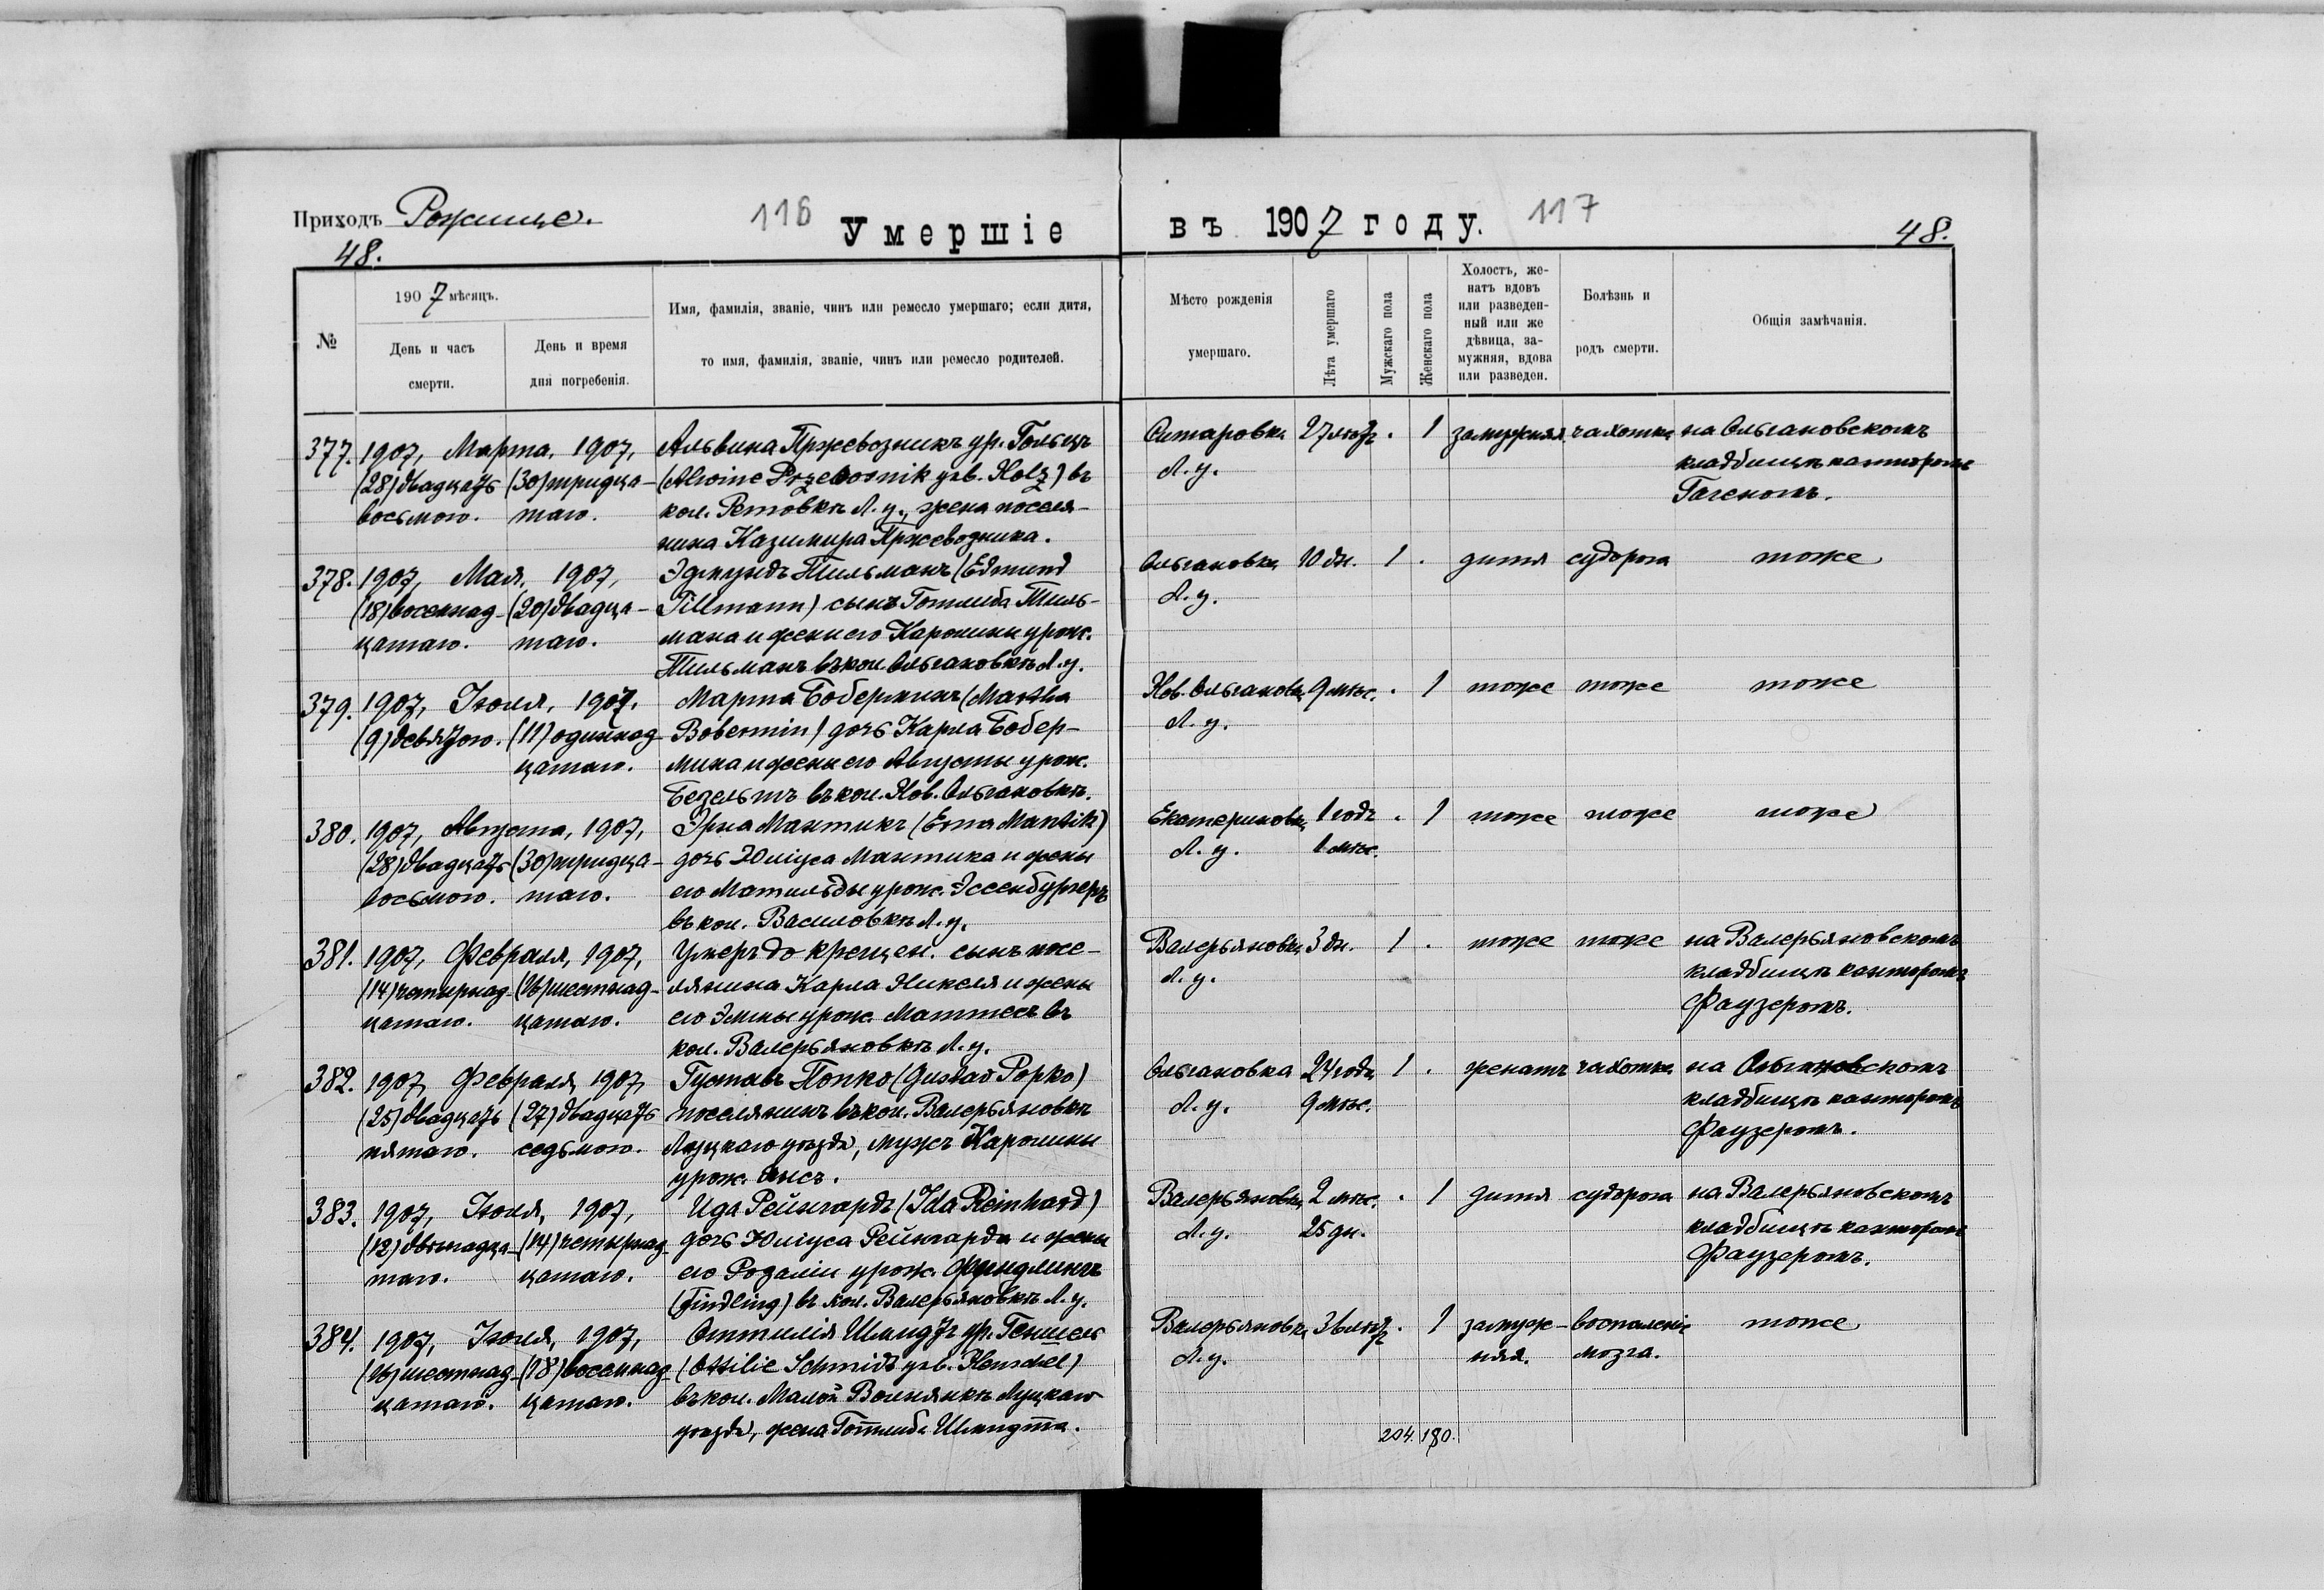 Приходъ Рожище.
116
Умершіе
въ 1907 году.
117
48.
48.
№
1907 мѣсяцъ.
День и часъ смерти.
День и время дня погребенія.
Имя, фамилія, званіе, чинъ или ремесло умершаго; если дитя,
то имя, фамилія, званіе, чинъ или ремесло родителей.
Мѣсто рожденія умершаго.
Лѣта умершаго
Мужскаго пола
Женскаго пола
Холостъ, же-
натъ вдовъ
или разведен-
ный или же
дѣвица, за-
мужняя, вдова
или разведен.
Болѣзнь и
родъ смерти.
Общія замѣчанія.
377. 1907, Марта, 1907, Альвина Пржевозникъ ур. Гольцъ Ситаровка 27 лѣтъ . 1 замужняя чахотка на Ольгановскомъ
(28) двадцать (30) тридца- (Alwine Przewosnik geb. Holz) въ Л. у. кладбищѣ канторомъ
восьмого. таго. кол. Ретовкѣ Л. у., жена поселя- Гагеномъ.
нина Казимира Пржевозника.
378. 1907, Мая, 1907, Эдмундъ Тильманъ (Edmund Ольгановка 10 дн. 1 . дитя судорога тоже
(18) восемнад- (20) двадца- Tillmann) сынъ Готлиба Тиль- Л. у.
цатаго. таго. мана и жены его Каролины урож.
Тильманъ въ кол. Ольгановкѣ Л. у.
379. 1907, Іюля, 1907. Марта Боберминъ (Martha Нов. Ольгановка 9 мѣс. . 1 тоже тоже тоже
(9) девятого. (11) одиннад- Bobermin) дочь Карла Бобер- Л. у.
цатаго. мина и жены его Августы урож.
Безельтъ въ кол. Нов. Ольгановкѣ.
380. 1907, Августа, 1907, Эрна Мантикъ (Erna Mantik) Екатериновка 1 годъ . 1 тоже тоже тоже
(28) двадцать (30) тридца- дочь Юліуса Мантика и жены Л. у. 1 мѣс.
восьмого. таго. его Матильды урож. Эссенбургеръ
въ кол. Василовкѣ Л. у.
381. 1907, Февраля, 1907, Умеръ до крещен. сынъ посе- Валерьяновка 3 дн. 1 . тоже тоже на Валерьяновскомъ
(14) четырнад- (16) шестнад- лянина Карла Никеля и жены Л. у. кладбищѣ канторомъ
цатаго. цатаго. его Эммы урож. Маттесъ въ Фаузеромъ.
кол. Валерьяновкѣ Л. у.
382. 1907, Февраля, 1907, Густавъ Попко (Gustav Popko) Ольгановка 24 года 1 . женатъ чахотка на Ольгановскомъ
(25) двадцать (27) двадцать поселянинъ въ кол. Валерьяновкѣ Л. у. 9 мѣс. кладбищѣ канторомъ
пятаго. седьмого. Луцкаго уѣзда, мужъ Каролины Фаузеромъ.
урож.
383. 1907, Іюля, 1907, Ида Рейнгардъ (Ida Reinhard) Валерьяновка 2 мѣс. . 1 дитя судорога на Валерьяновскомъ
(12) двѣнадца- (14) четырнад- дочь Юліуса Рейнгарда и жены Л. у. 25 дн. кладбищѣ канторомъ
таго. цатаго. его Розаліи урож. Финдлингъ Фаузеромъ.
(Findling) въ кол. Валерьяновкѣ Л. у.
384. 1907, Іюля, 1907, Оттилія Шмидтъ ур. Геншель Валерьяновка 36 лѣтъ . 1 замуж- воспаленіе тоже
(16) шестнад- (18) восемнад- (Ottilie Schmidt geb. Henschel) Л. у. няя. мозга.
цатаго. цатаго. въ кол. Малой Волнянкѣ Луцкаго
уѣзда, жена Готлиба Шмидта.
204. 180.